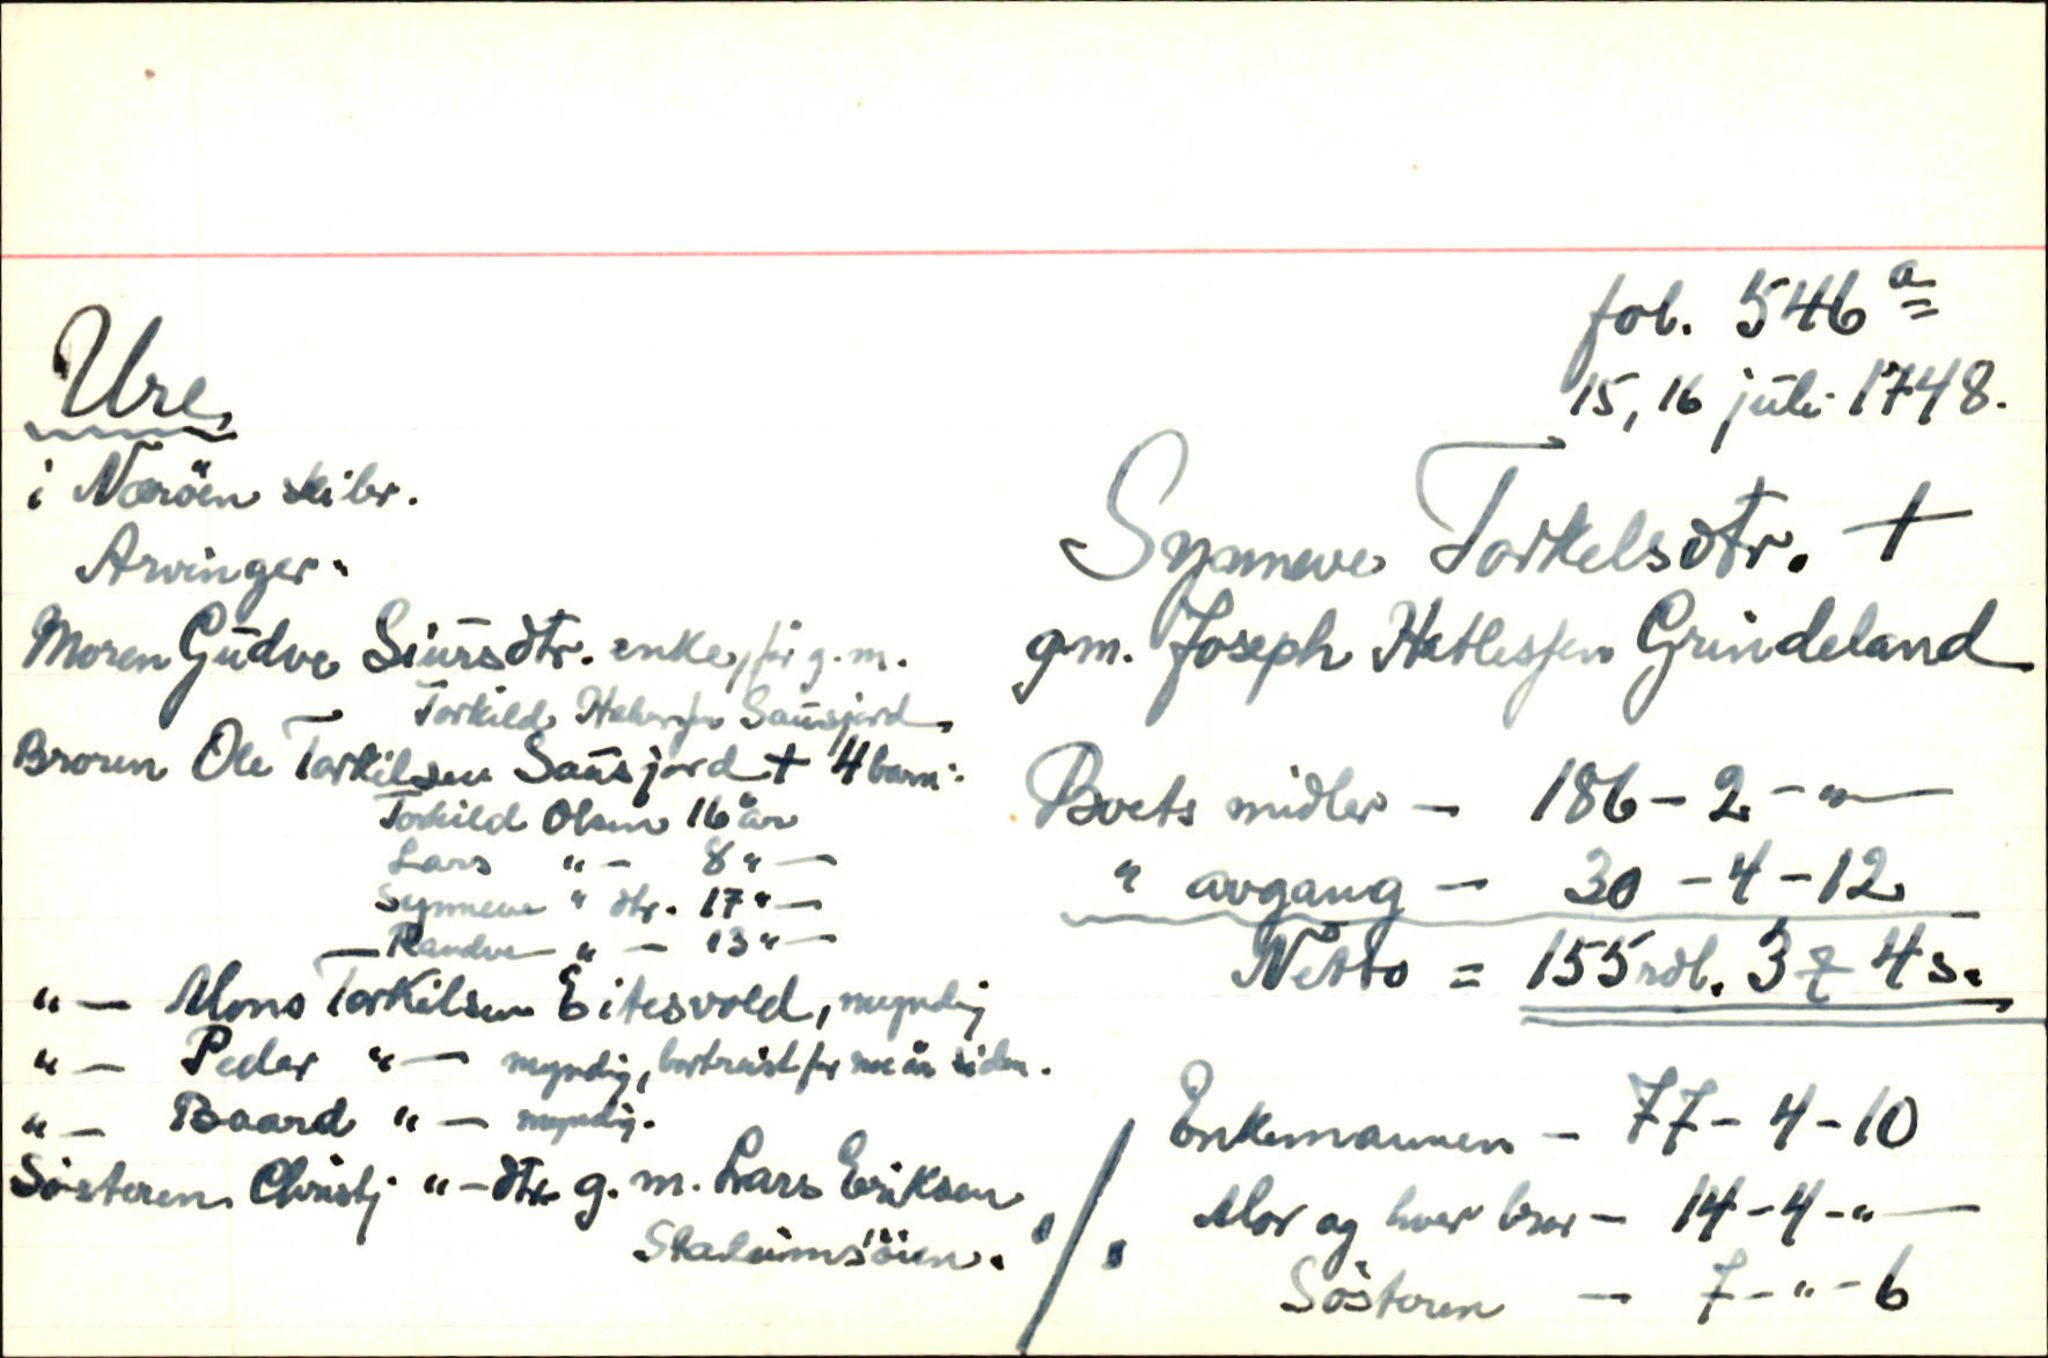 fol. 546 a
15, 16 juli 1748.
Ure
i Nærøen skibr.
Arvinger:
Moren Gudve Siursdtr. enke, før g. m.
Torkild Sausjord
Broren Ole Torkilsen Sausjord + 4 barn:
Torkild Olsen 16 år
Lars " - 8 " -
Synneve " dtr. 17 " -
Randve " - 13 " -
" - Mons Torkilsen Eitesvold, myndig
" - Peder " - myndig, bortreist for noe år siden.
" - Baard " - myndig.
Søsteren Christj " - dtr. g. m. Lars Eriksen
Stalumsøien. ./.
Synneve Torkelsdtr. +
gm. Joseph Hetlessen Grindeland
Boets midler - 186 - 2 - "
" avgang - 30 - 4 - 12
Netto = 155 rdl. 3 ʒ 4 s.
Enkemannen - 77 - 4 - 10
Mor og hver bror - 14 - 4 - "
Søsteren - 7 - " - 6